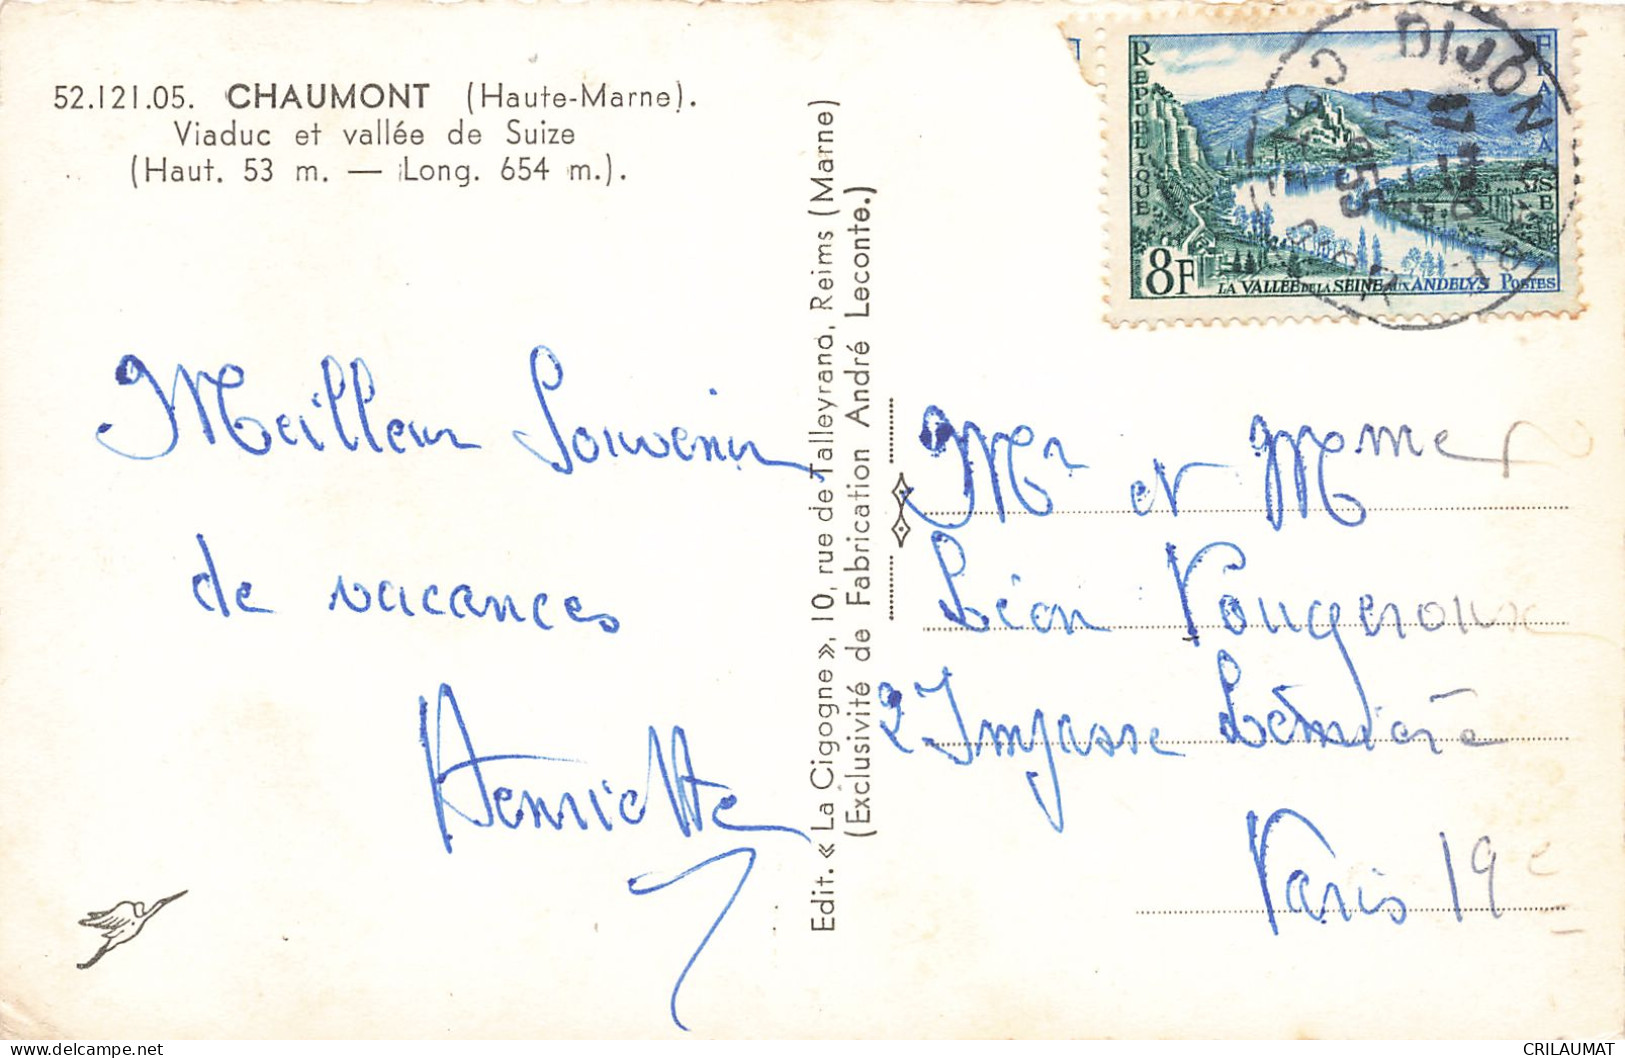 52.121.05. CHAUMONT (Haute-Marne).
Viaduc et vallée de Suize
(Haut. 53 m. — Long. 654 m.).
Meilleur Souvenir
de vacances
Henriette
Edit. « La Cigogne », 10, rue de Talleyrand, Reims (Marne)
(Exclusivité de Fabrication André Leconte.)
REPUBLIQUE
FRANÇAISE
8F
LA VALLEE DE LA SEINE AUX ANDELYS POSTES
DIJON
COTE D'OR
1955
Mr et Mme
Léon Vougeroux
2 Impasse
Paris 19e
delcampe.net
CRILAUMAT